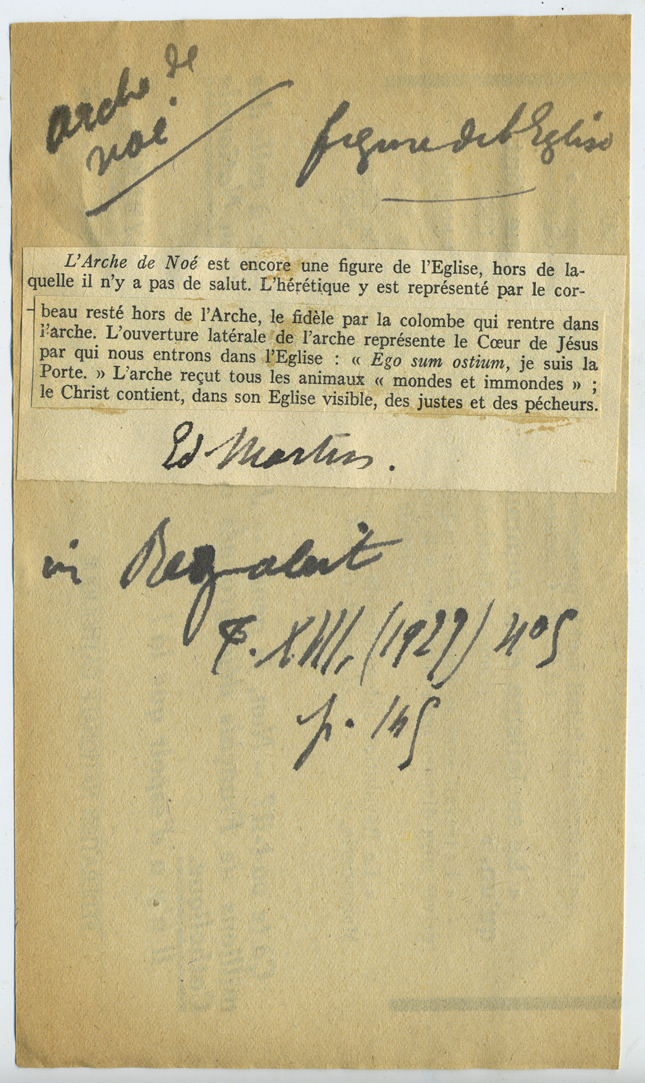 arche de
noé
figure de l'Eglise
L'Arche de Noé est encore une figure de l'Eglise, hors de la-
quelle il n'y a pas de salut. L'hérétique y est représenté par le cor-
beau resté hors de l'Arche, le fidèle par la colombe qui rentre dans
l'arche. L'ouverture latérale de l'arche représente le Cœur de Jésus
par qui nous entrons dans l'Eglise : « Ego sum ostium, je suis la
Porte. » L'arche reçut tous les animaux « mondes et immondes » ;
le Christ contient, dans son Eglise visible, des justes et des pécheurs.
Ed Martin.
in Regnabit
T. XIII, (1927) n°5
p. 145